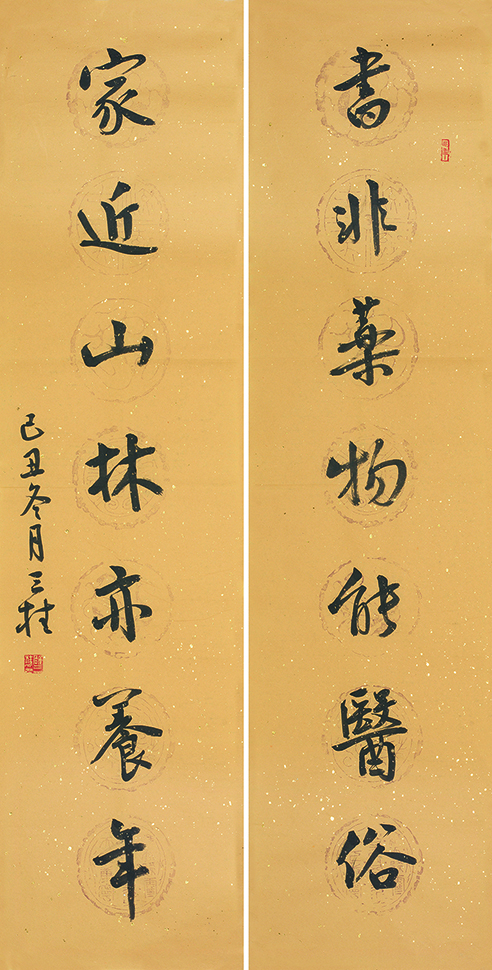 書非藥物能醫俗
家近山林亦養年
己丑冬月三柱